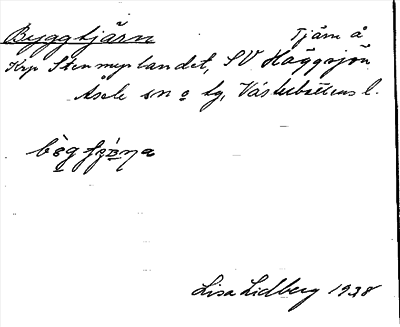 Byggtjärn Tjärn å
Krp Stenmyrlandet, SV Häggsjön
Åsele sn o lg, Västerbottens l.
Lisa Lidberg 1938